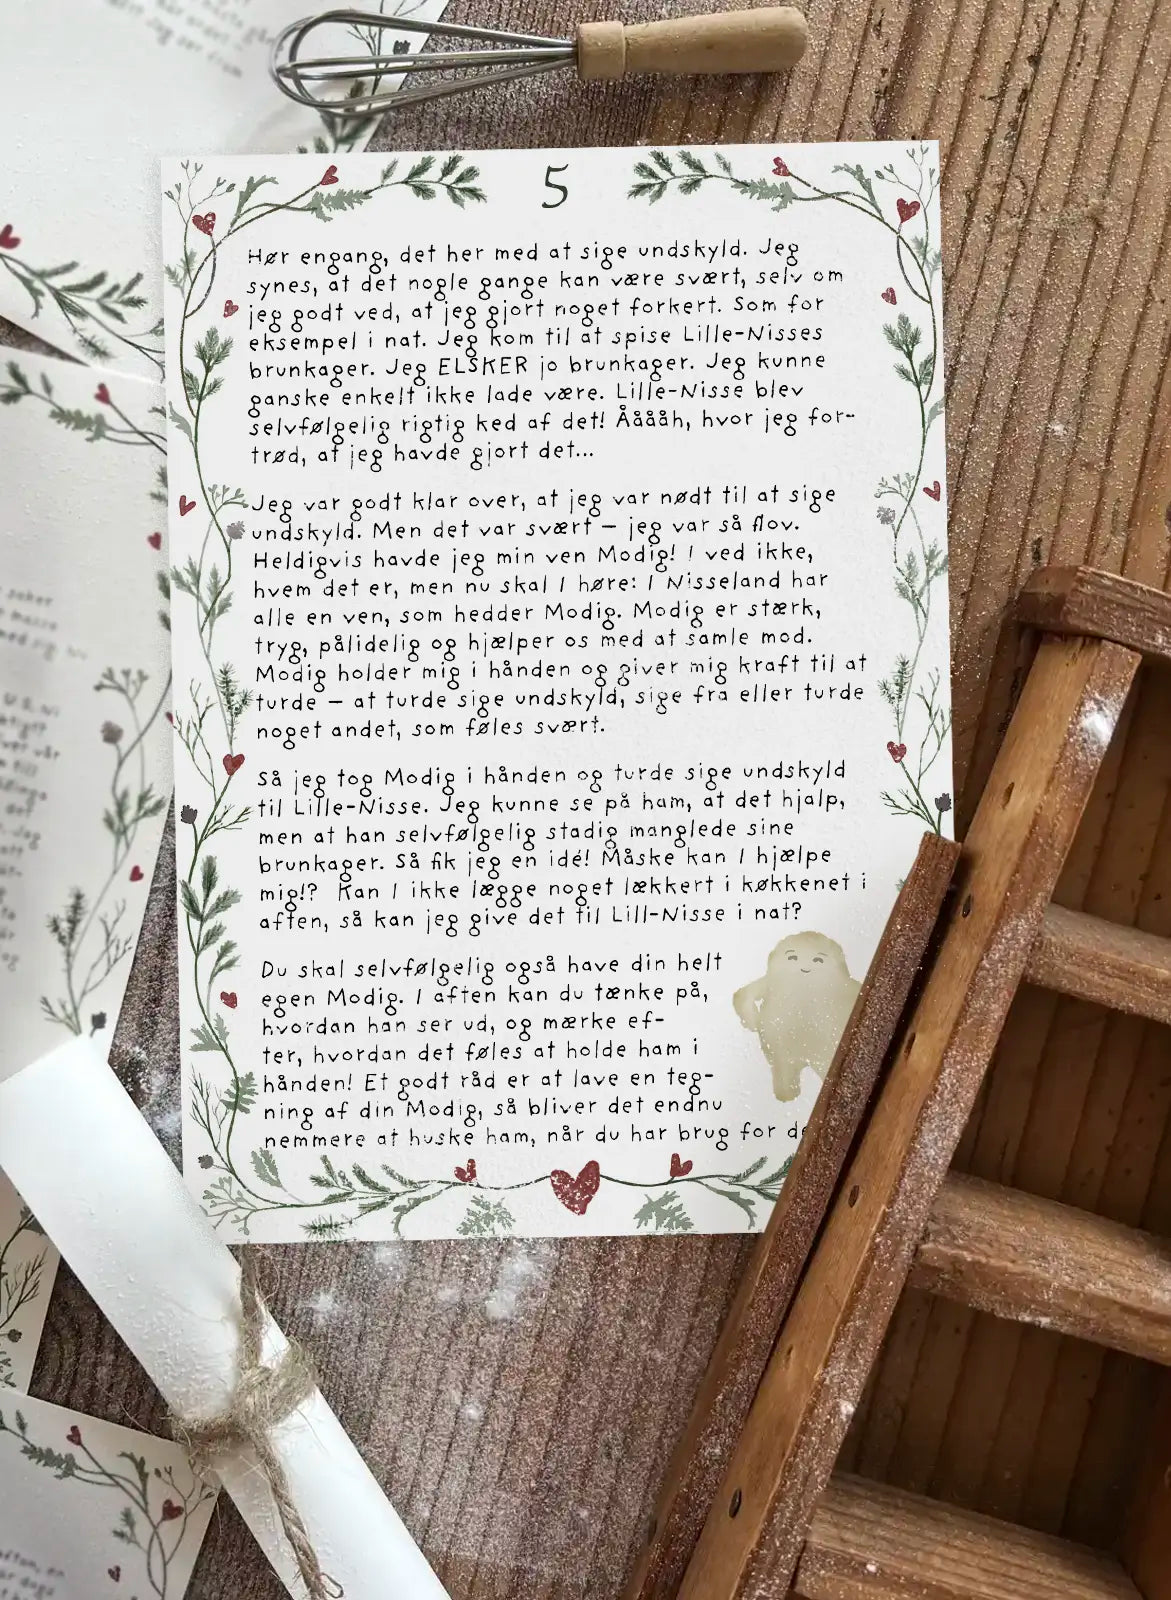 5
Hør engang, det her med at sige undskyld. Jeg
synes, at det nogle gange kan være svært, selv om
jeg godt ved, at jeg gjort noget forkert. Som for
eksempel i nat. Jeg kom til at spise Lille-Nisses
brunkager. Jeg ELSKER jo brunkager. Jeg kunne
ganske enkelt ikke lade være. Lille-Nisse blev
selvfølgelig rigtig ked af det! Ååååh, hvor jeg for-
trød, at jeg havde gjort det...
Jeg var godt klar over, at jeg var nødt til at sige
undskyld. Men det var svært – jeg var så flov.
Heldigvis havde jeg min ven Modig! I ved ikke,
hvem det er, men nu skal I høre: I Nisseland har
alle en ven, som hedder Modig. Modig er stærk,
tryg, pålidelig og hjælper os med at samle mod.
Modig holder mig i hånden og giver mig kraft til at
turde – at turde sige undskyld, sige fra eller turde
noget andet, som føles svært.
Så jeg tog Modig i hånden og turde sige undskyld
til Lille-Nisse. Jeg kunne se på ham, at det hjalp,
men at han selvfølgelig stadig manglede sine
brunkager. Så fik jeg en idé! Måske kan I hjælpe
mig!? Kan I ikke lægge noget lækkert i køkkenet i
aften, så kan jeg give det til Lill-Nisse i nat?
Du skal selvfølgelig også have din helt
egen Modig. I aften kan du tænke på,
hvordan han ser ud, og mærke ef-
ter, hvordan det føles at holde ham i
hånden! Et godt råd er at lave en teg-
ning af din Modig, så bliver det endnu
nemmere at huske ham, når du har brug for